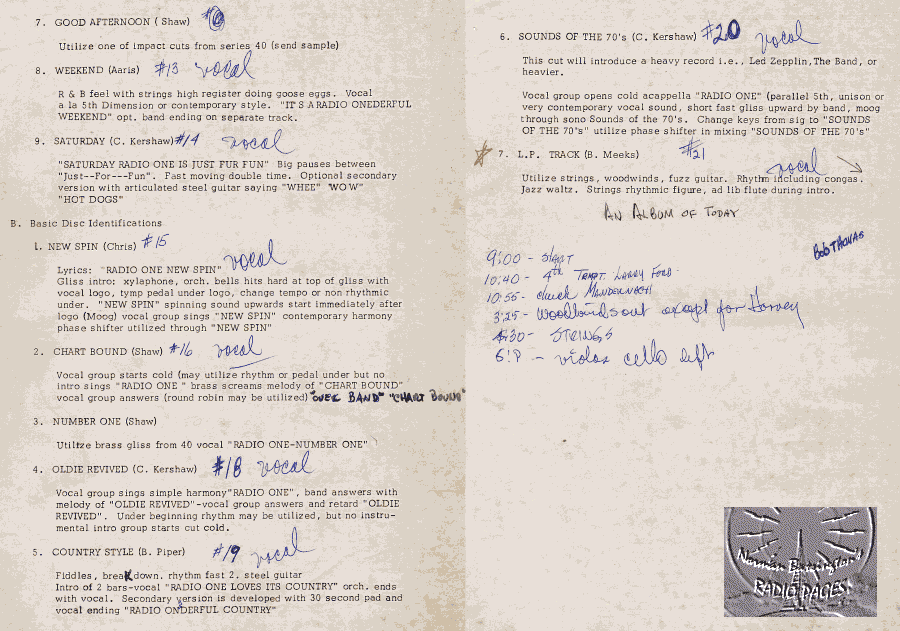 7. GOOD AFTERNOON ( Shaw) #6
Utilize one of impact cuts from series 40 (send sample)
8. WEEKEND (Aaris) #13 vocal
R & B feel with strings high register doing goose eggs. Vocal
a la 5th Dimension or contemporary style. "IT'S A RADIO ONEDERFUL
WEEKEND" opt. band ending on separate track.
9. SATURDAY (C. Kershaw) #14 vocal
"SATURDAY RADIO ONE IS JUST FUR FUN" Big pauses between
"Just--For---Fun". Fast moving double time. Optional secondary
version with articulated steel guitar saying "WHEE" "WOW"
"HOT DOGS"
B. Basic Disc Identifications
1. NEW SPIN (Chris) #15
vocal
Lyrics: "RADIO ONE NEW SPIN"
Gliss intro: xylaphone, orch. bells hits hard at top of gliss with
vocal logo, tymp pedal under logo, change tempo or non rhythmic
under. "NEW SPIN" spinning sound upwards start immediately after
logo (Moog) vocal group sings "NEW SPIN" contemporary harmony
phase shifter utilized through "NEW SPIN"
2. CHART BOUND (Shaw) #16 vocal
Vocal group starts cold (may utilize rhythm or pedal under but no
intro sings "RADIO ONE " brass screams melody of "CHART BOUND"
vocal group answers (round robin may be utilized) "OVER BAND" "CHART BOUND"
3. NUMBER ONE (Shaw)
Utiltze brass gliss from 40 vocal "RADIO ONE-NUMBER ONE"
4. OLDIE REVIVED (C. Kershaw) #18 vocal
Vocal group sings simple harmony"RADIO ONE", band answers with
melody of "OLDIE REVIVED"-vocal group answers and retard "OLDIE
REVIVED". Under beginning rhythm may be utilized, but no instru-
mental intro group starts cut cold.
5. COUNTRY STYLE (B. Piper) #19 vocal
Fiddles, breakdown. rhythm fast 2. steel guitar
Intro of 2 bars-vocal "RADIO ONE LOVES ITS COUNTRY" orch. ends
with vocal. Secondary version is developed with 30 second pad and
vocal ending "RADIO ONDERFUL COUNTRY"
6. SOUNDS OF THE 70's (C. Kershaw) #20 vocal
This cut will introduce a heavy record i.e., Led Zepplin, The Band, or
heavier.
Vocal group opens cold acappella "RADIO ONE" (parallel 5th, unison or
very contemporary vocal sound, short fast gliss upward by band, moog
through sono Sounds of the 70's. Change keys from sig to "SOUNDS
OF THE 70's" utilize phase shifter in mixing "SOUNDS OF THE 70's"
7. L.P. TRACK (B. Meeks) #21
vocal
Utilize strings, woodwinds, fuzz guitar. Rhythm including congas.
Jazz waltz. Strings rhythmic figure, ad lib flute during intro.
AN ALBUM OF TODAY
Bob THOMAS
9:00 - START
10:40 - 4th TRMPT. LARRY FORD
10:55 - chuck
3:25 - Woodwinds out except for Harvey
4:30 - STRINGS
6:P - violas cello left
Norman Barrington's
RADIO PAGES